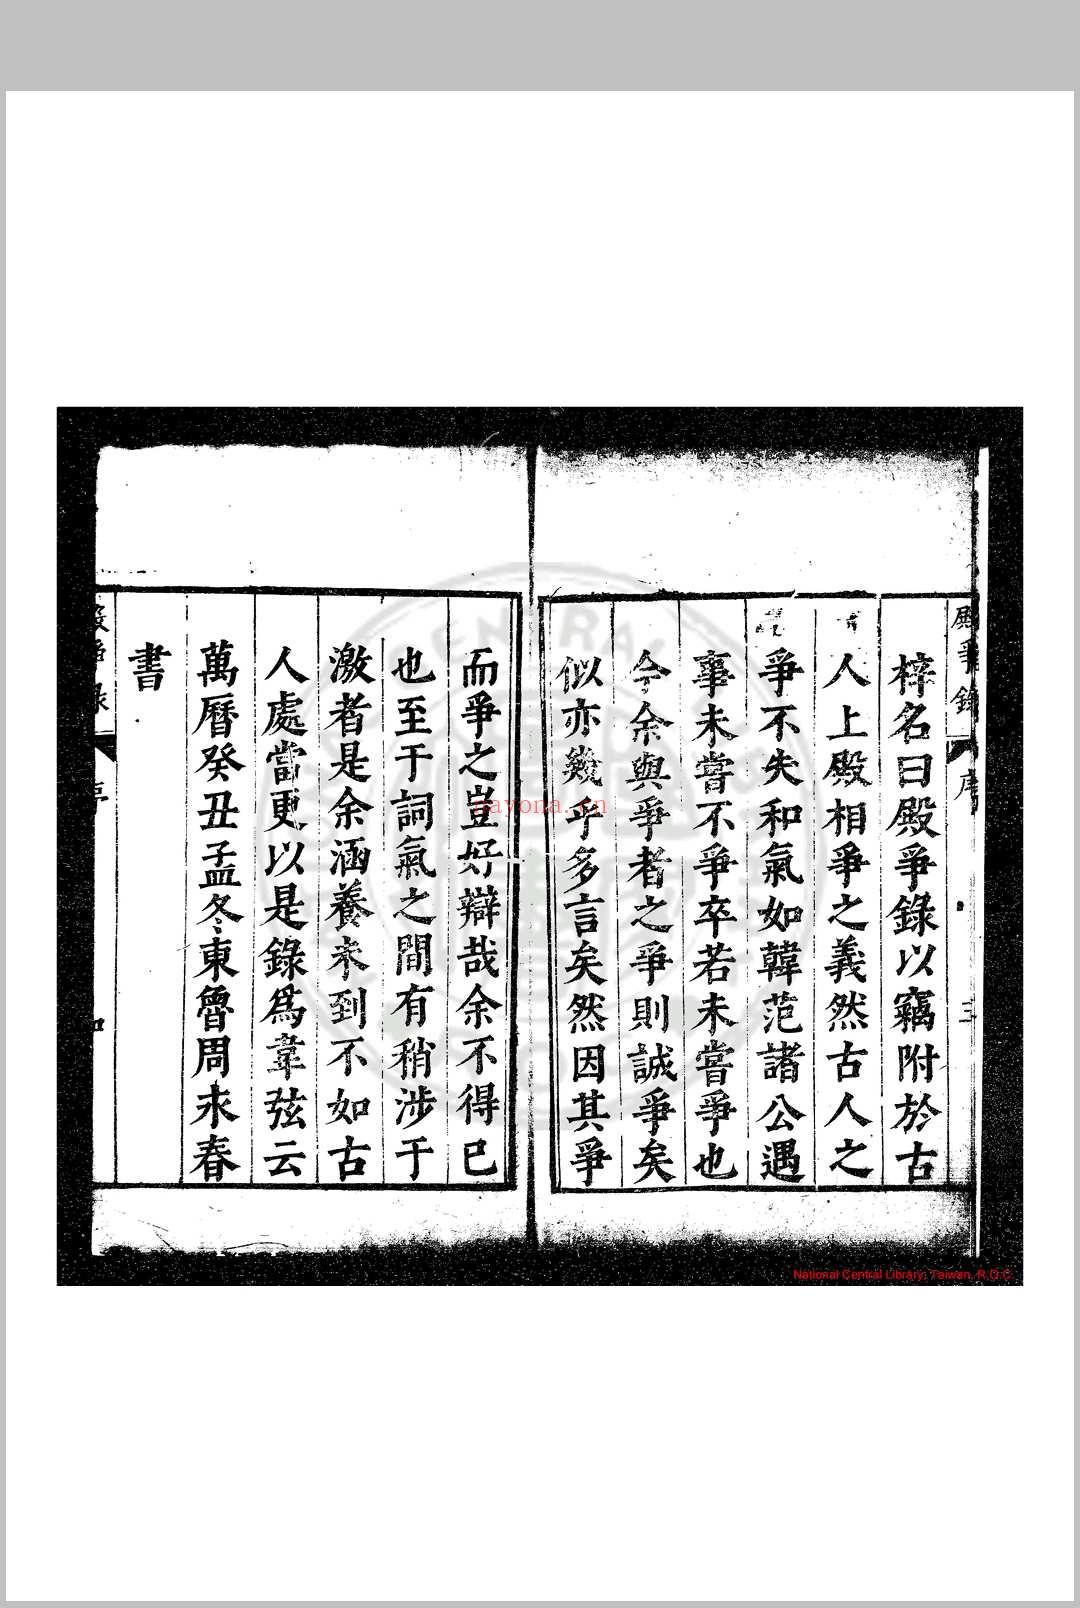 殿爭錄 序 三
梓名曰殿爭錄以竊附於古
人上殿相爭之義然古人之
爭不失和氣如韓范諸公遇
事未嘗不爭卒若未嘗爭也
今余與爭者之爭則誠爭矣
似亦幾乎多言矣然因其爭
而爭之豈好辯哉余不得已
也至于詞氣之間有稍涉于
激者是余涵養未到不如古
人處當更以是錄為韋弦云
萬曆癸丑孟冬東魯周永春
書
nayona.cn
National Central Library, Taiwan, R.O.C